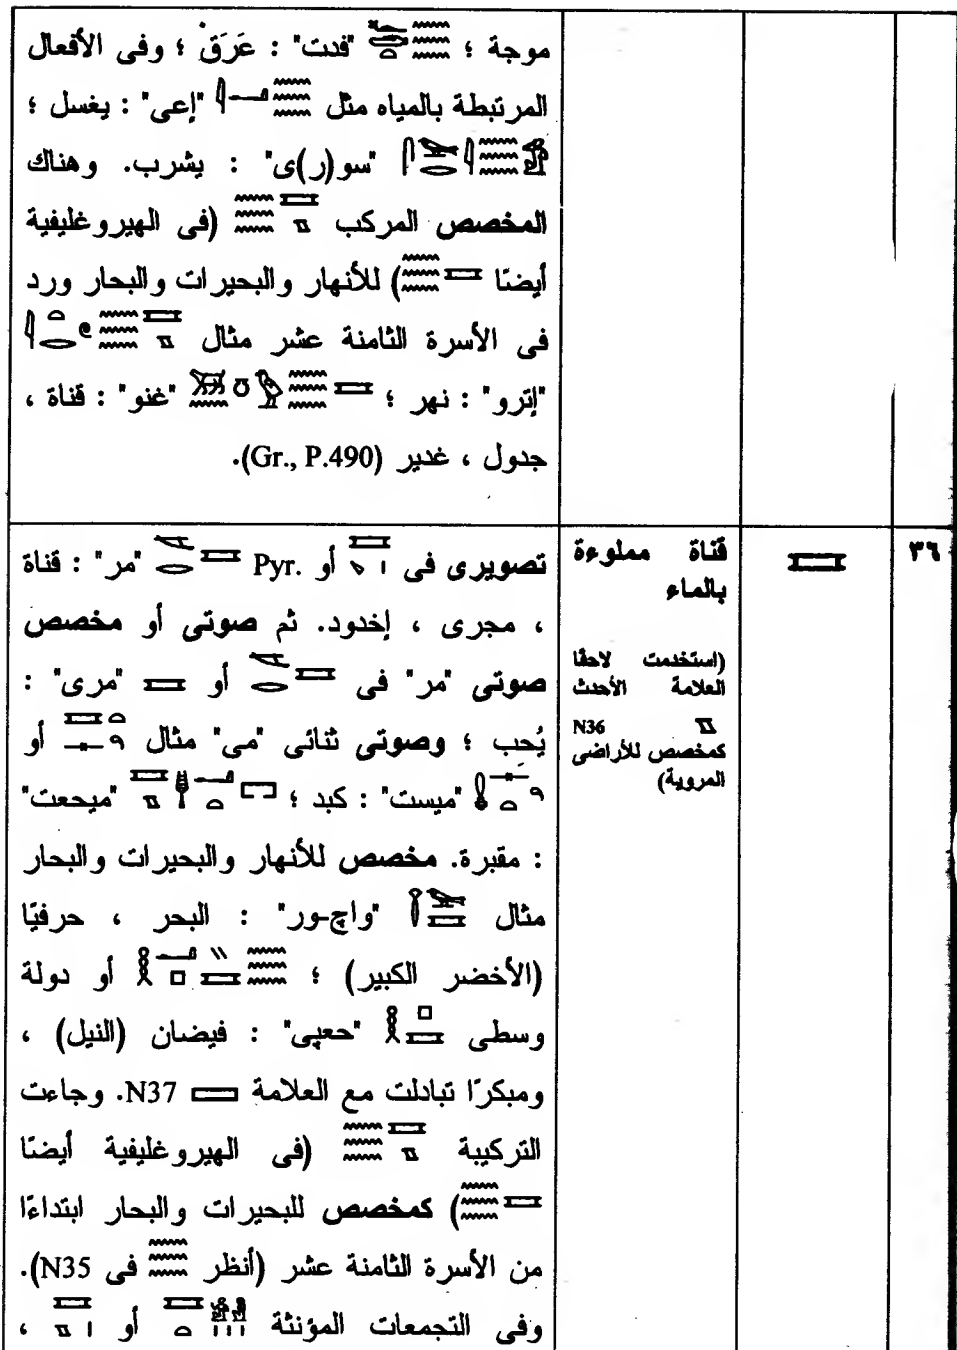 موجة ؛ "فدت" : عَرَقْ ؛ وفى الأفعال
المرتبطة بالمياه مثل "إعى" : يغسل ؛
"سو(ر)ى" : يشرب. وهناك
المخصص المركب (فى الهيروغليفية
أيضًا ) للأنهار والبحيرات والبحار ورد
فى الأسرة الثامنة عشر مثال
"إترو" : نهر ؛ "غنو" : قناة ،
جدول ، غدير (Gr., P.490).
٣٦
قناة مملوءة
بالماء
(استخدمت لاحقًا
العلامة الأحدث
N36
كمخصص للأراضى
المروية)
تصويرى فى أو Pyr. "مر" : قناة
، مجرى ، إخدود. ثم صوتى أو مخصص
صوتى "مر" فى أو "مرى" :
يُحب ؛ وصوتى ثنائى "مى" مثال أو
"ميست" : كبد ؛ "ميحعت"
: مقبرة. مخصص للأنهار والبحيرات والبحار
مثال "واچ-ور" : البحر ، حرفيًا
(الأخضر الكبير) ؛ أو دولة
وسطى "حعپى" : فيضان (النيل) ،
ومبكرًا تبادلت مع العلامة N37. وجاءت
التركيبة (فى الهيروغليفية أيضًا
) كمخصص للبحيرات والبحار ابتداءًا
من الأسرة الثامنة عشر (أنظر فى N35).
وفى التجمعات المؤنثة أو ،